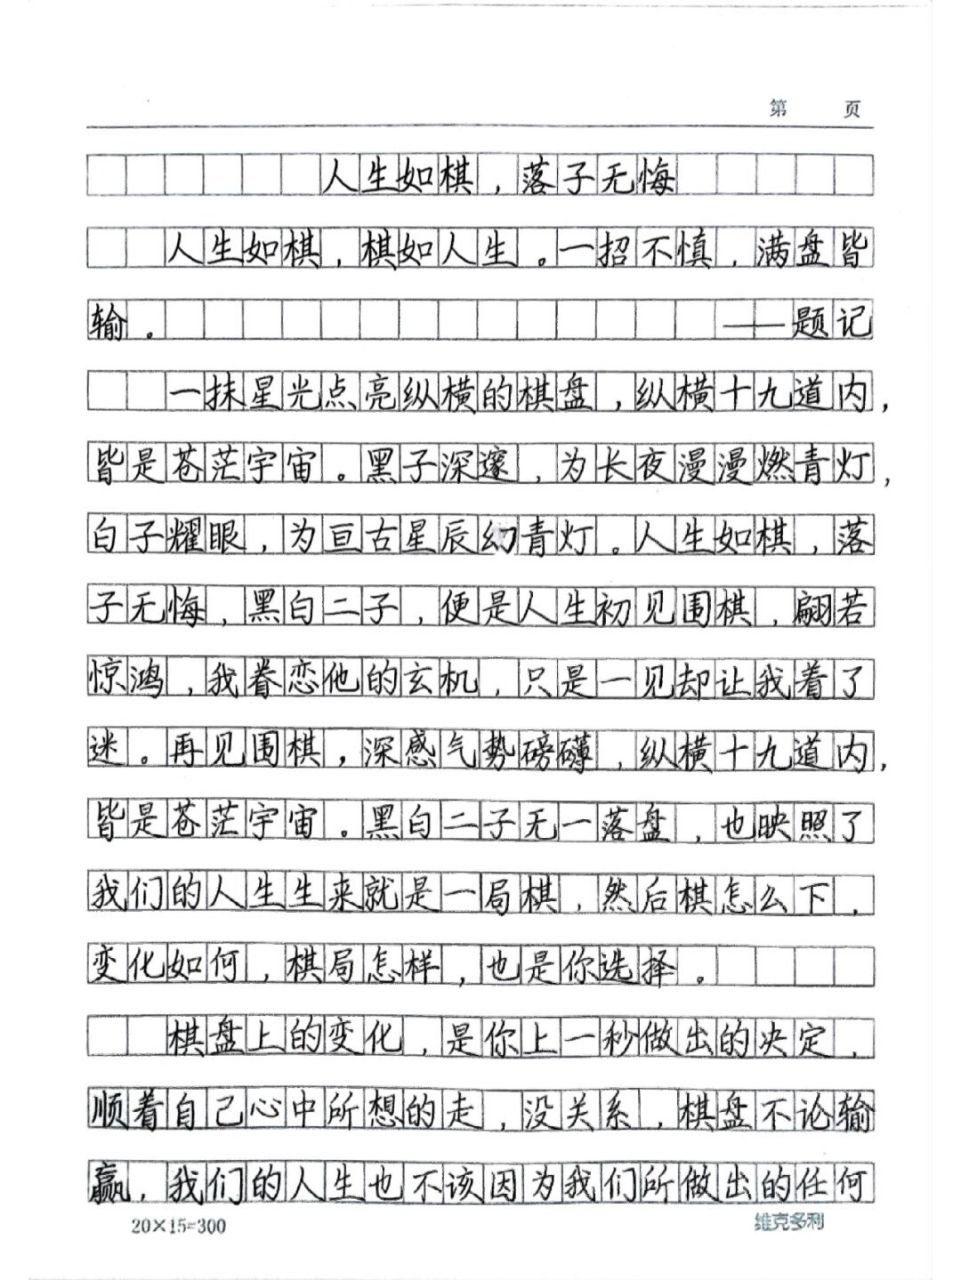 第 页
人生如棋，落子无悔
人生如棋，棋如人生。一招不慎，满盘皆
输。——题记
一抹星光点亮纵横的棋盘，纵横十九道内，
皆是苍茫宇宙。黑子深邃，为长夜漫漫燃青灯，
白子耀眼，为亘古星辰幻青灯。人生如棋，落
子无悔，黑白二子，便是人生初见围棋，翩若
惊鸿，我眷恋他的玄机，只是一见却让我着了
迷。再见围棋，深感气势磅礴，纵横十九道内，
皆是苍茫宇宙。黑白二子无一落盘，也映照了
我们的人生生来就是一局棋，然后棋怎么下，
变化如何，棋局怎样，也是你选择。
棋盘上的变化，是你上一秒做出的决定，
顺着自己心中所想的走，没关系，棋盘不论输
赢，我们的人生也不该因为我们所做出的任何
20×15=300
维克多利